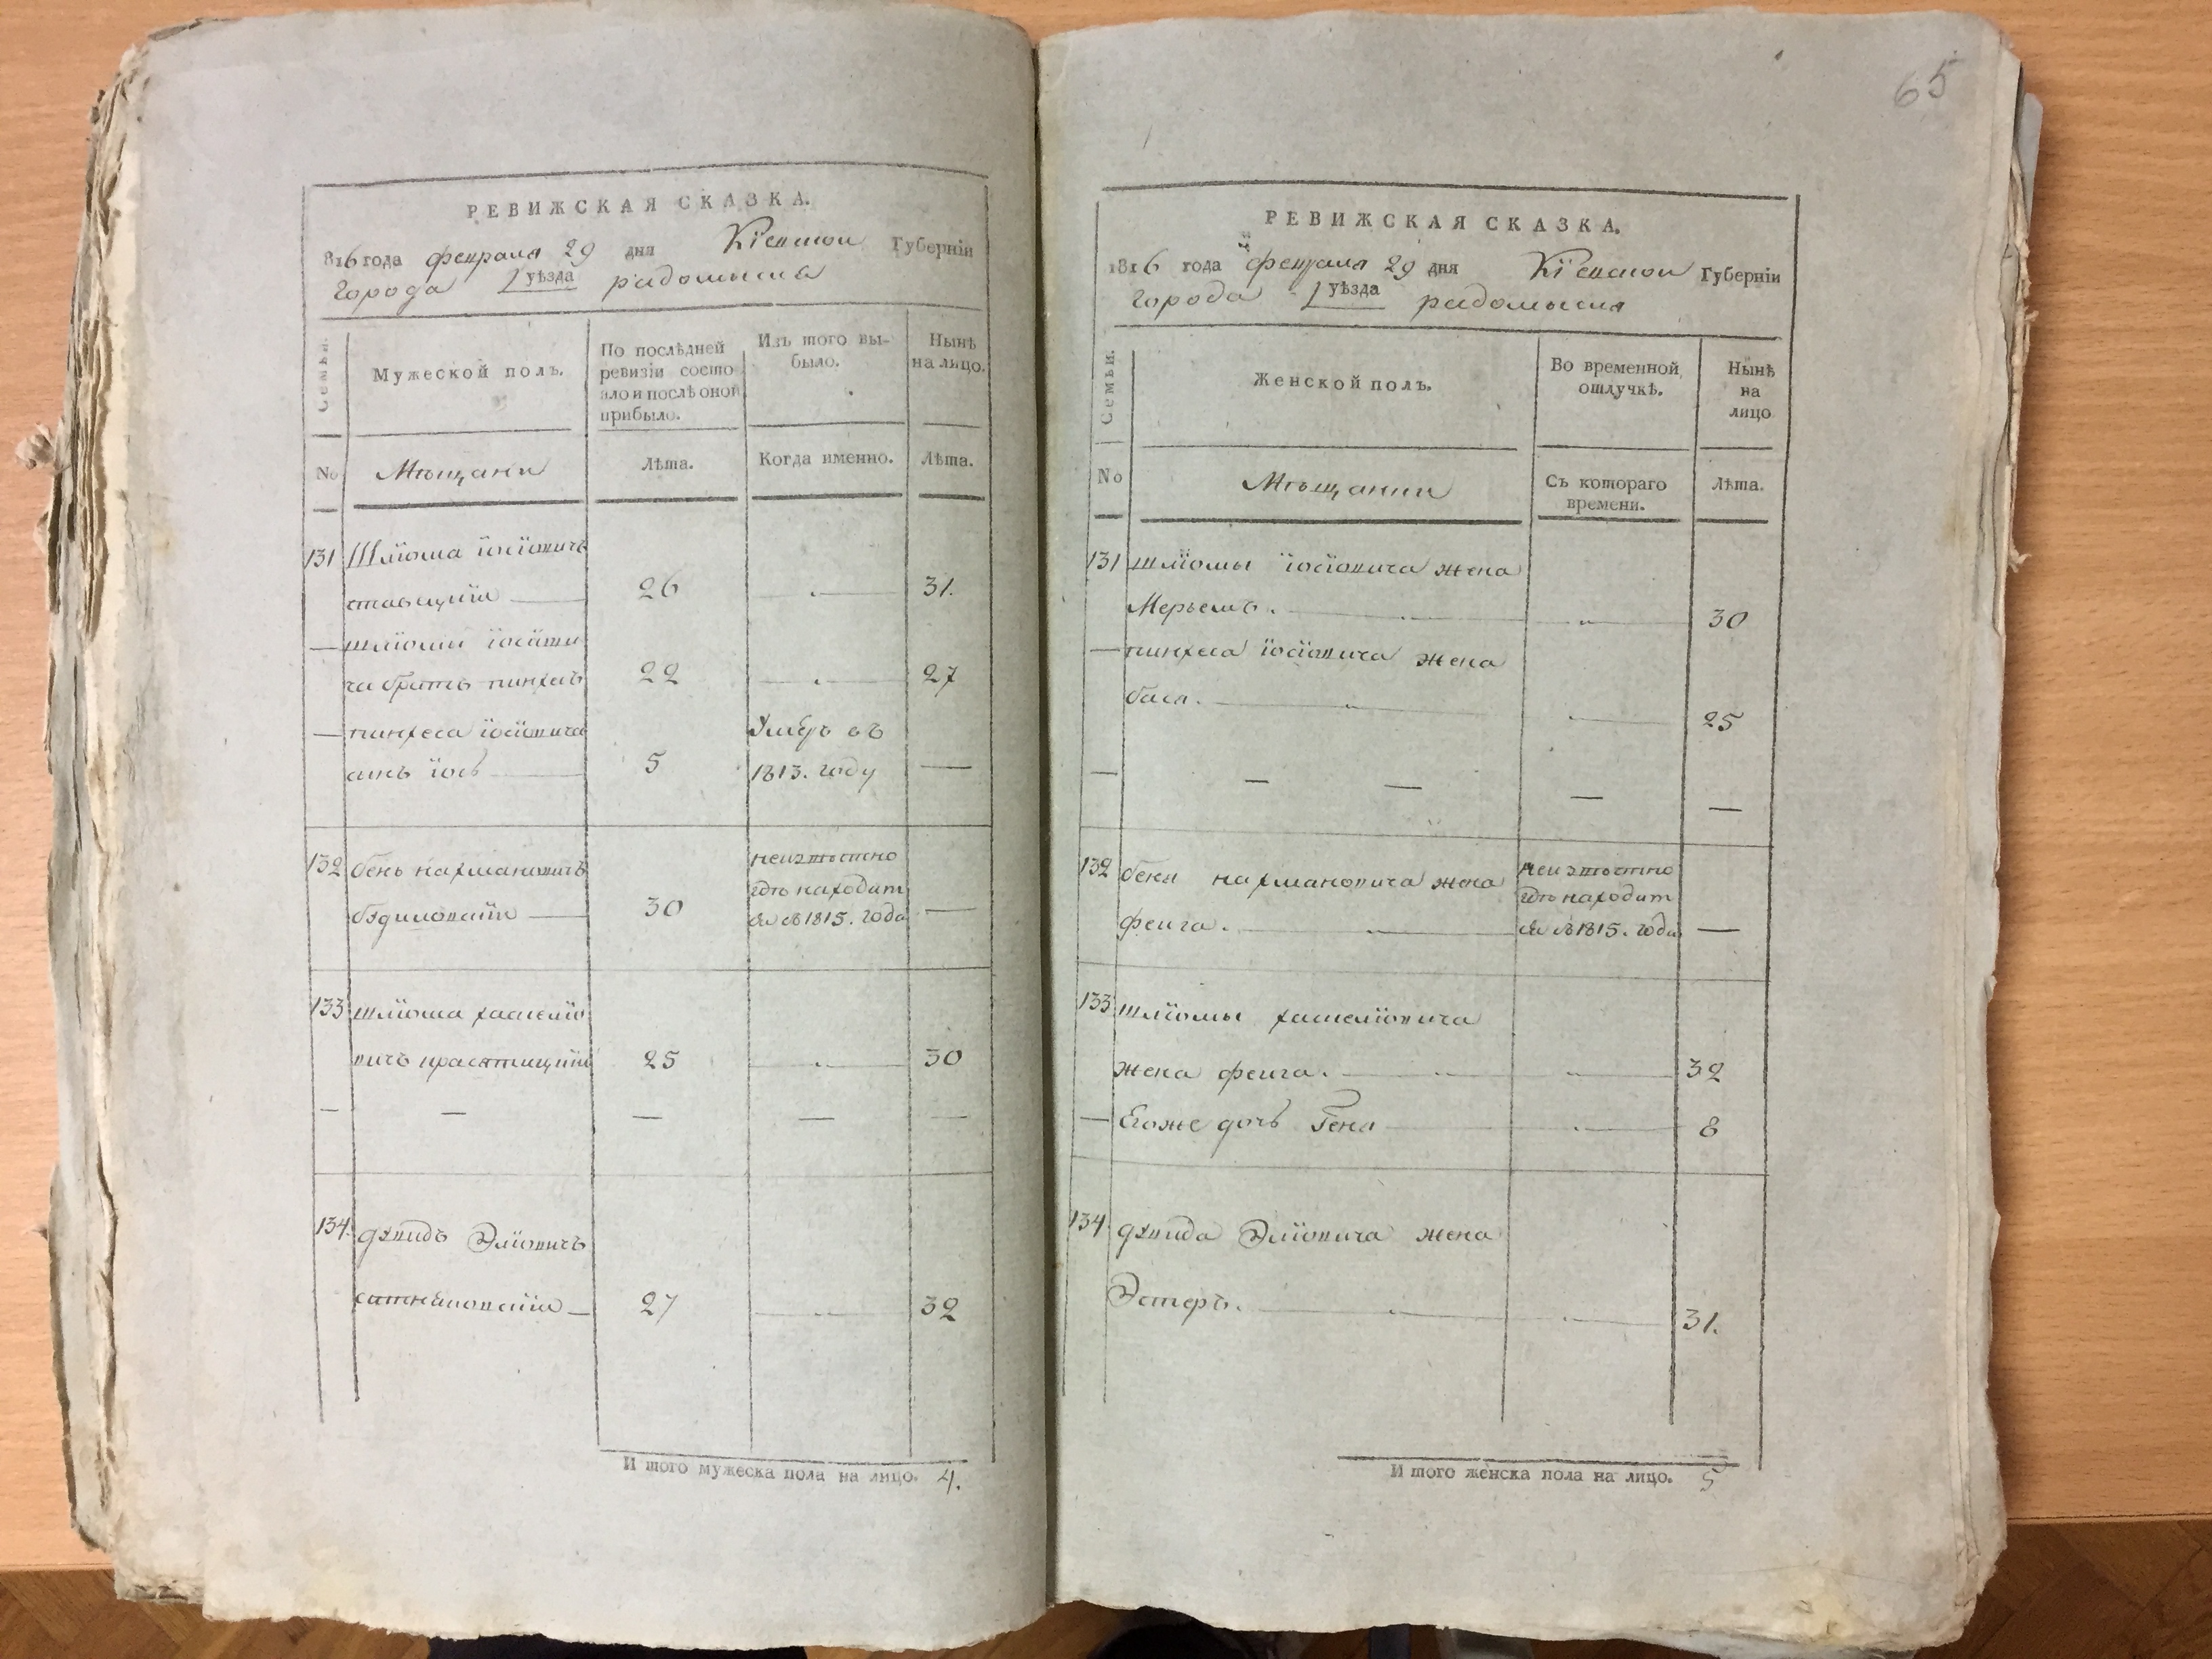 РЕВИЖСКАЯ СКАЗКА.
816 года февраля 29 дня Кіевской Губерніи
Города уѣзда радомысля
Семьи.
Мужеской полъ.
По послѣдней ревизіи состояло и послѣ оной прибыло.
Изъ того выбыло.
Нынѣ на лицо.
No
Мѣщане
Лѣта.
Когда именно.
Лѣта.
131 Шліома іосіовичъ
ставицкій 26 31.
— шліомы іосіови
ча братъ пинхасъ 22 27
— пинхеса іосіовича Умеръ въ
сынъ іось 5 1813. году —
132 бень нахмановичъ неизвѣстно
гдѣ находит
30 ся съ 1815. года —
133 шліома хаскеліо
вичъ 25 30
— — — — —
134. давидъ Эліовичъ
27 32
И того мужеска пола на лицо. 4.
65
РЕВИЖСКАЯ СКАЗКА.
1816 года февраля 29 дня Кіевской Губерніи
Города уѣзда радомысля
Семьи.
Женской полъ.
Во временной отлучкѣ.
Нынѣ на лицо
No
Мѣщанки
Съ котораго времени.
Лѣта.
131 шліомы іосіовича жена
Мерьемъ. 30
— пинхеса іосіовича жена
бася. 25
— — — — —
132 беня нахмановича жена неизвѣстно
гдѣ находит
фейга. ся съ 1815. года —
133 шліомы хаскеліовича
жена фейга. 32
— Егоже дочь Гена 8
134 давида Эліовича жена
Эстеръ. 31.
И того женска пола на лицо. 5